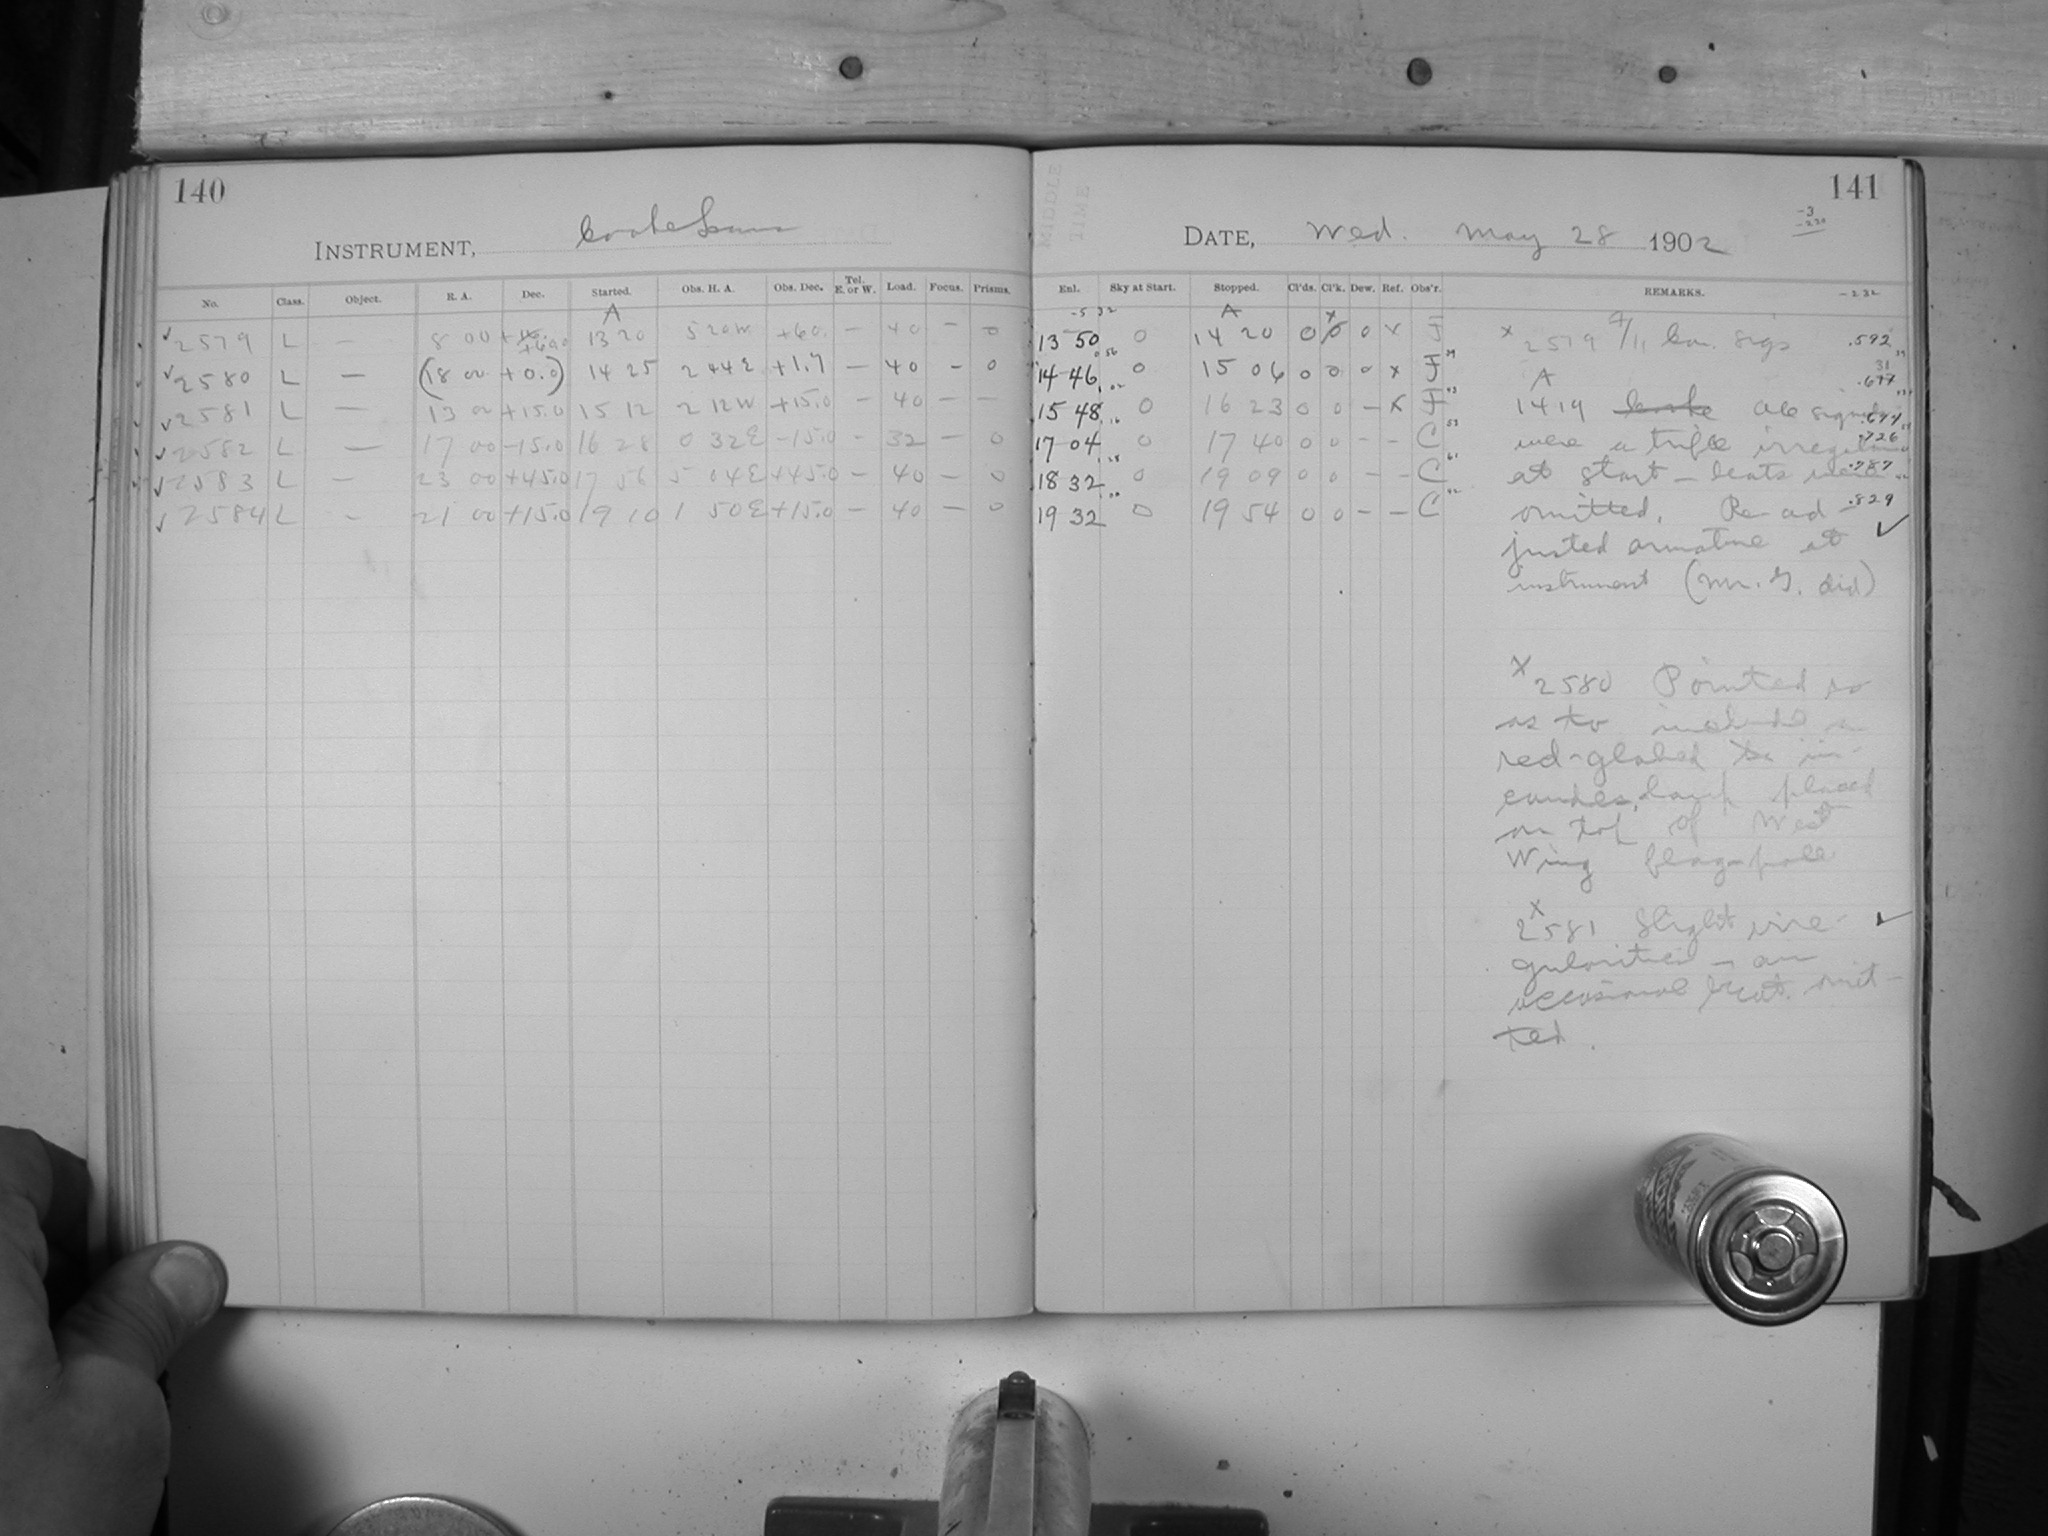 140
INSTRUMENT, Cooke Lens
No. Class. Object. R. A. Dec. Started. Obs. H. A. Obs. Dec. Tel. E. or W. Load. Focus. Prisms.
A
✓ 2579 L — 8 00 +60.0 13 20 5 20 W +60. — 40 — 0
✓ 2580 L — (18 00 +0.0) 14 25 2 44 E +1.7 — 40 - 0
✓ 2581 L — 13 00 +15.0 15 12 2 12 W +15.0 — 40 — —
✓ 2582 L — 17 00 -15.0 16 28 0 32 E -15.0 - 32 — 0
✓ 2583 L — 23 00 +45.0 17 56 5 04 E +45.0 — 40 — 0
✓ 2584 L - 21 00 +15.0 19 10 1 50 E +15.0 — 40 — 0
141
-3
-.230
DATE, Wed. May 28 1902
Enl. Sky at Start. Stopped. Cl'ds. Cl'k. Dew. Ref. Obs'r. REMARKS.
-.232
-5 32 A x
13 50 0 14 20 0 0 0 x J
14 46 0 15 06 0 0 0 x J
15 48 0 16 23 0 0 — x J
17 04 0 17 40 0 0 - - C
18 32 0 19 09 0 0 - - C
19 32 0 19 54 0 0 - — C
x 2579 con. sigs .592
A .677
1419 All signals
were a trifle irregular .726
at start — beats were .787
omitted. Re-ad- .829
justed armature at ✓
instrument (Mr. G. did)
x 2580 Pointed so
as to include a
red-globed in-
candes. lamp placed
on top of West
Wing flag-pole
x
2581 Slight irre- ✓
gularities — an
occasional beat omit-
ted.